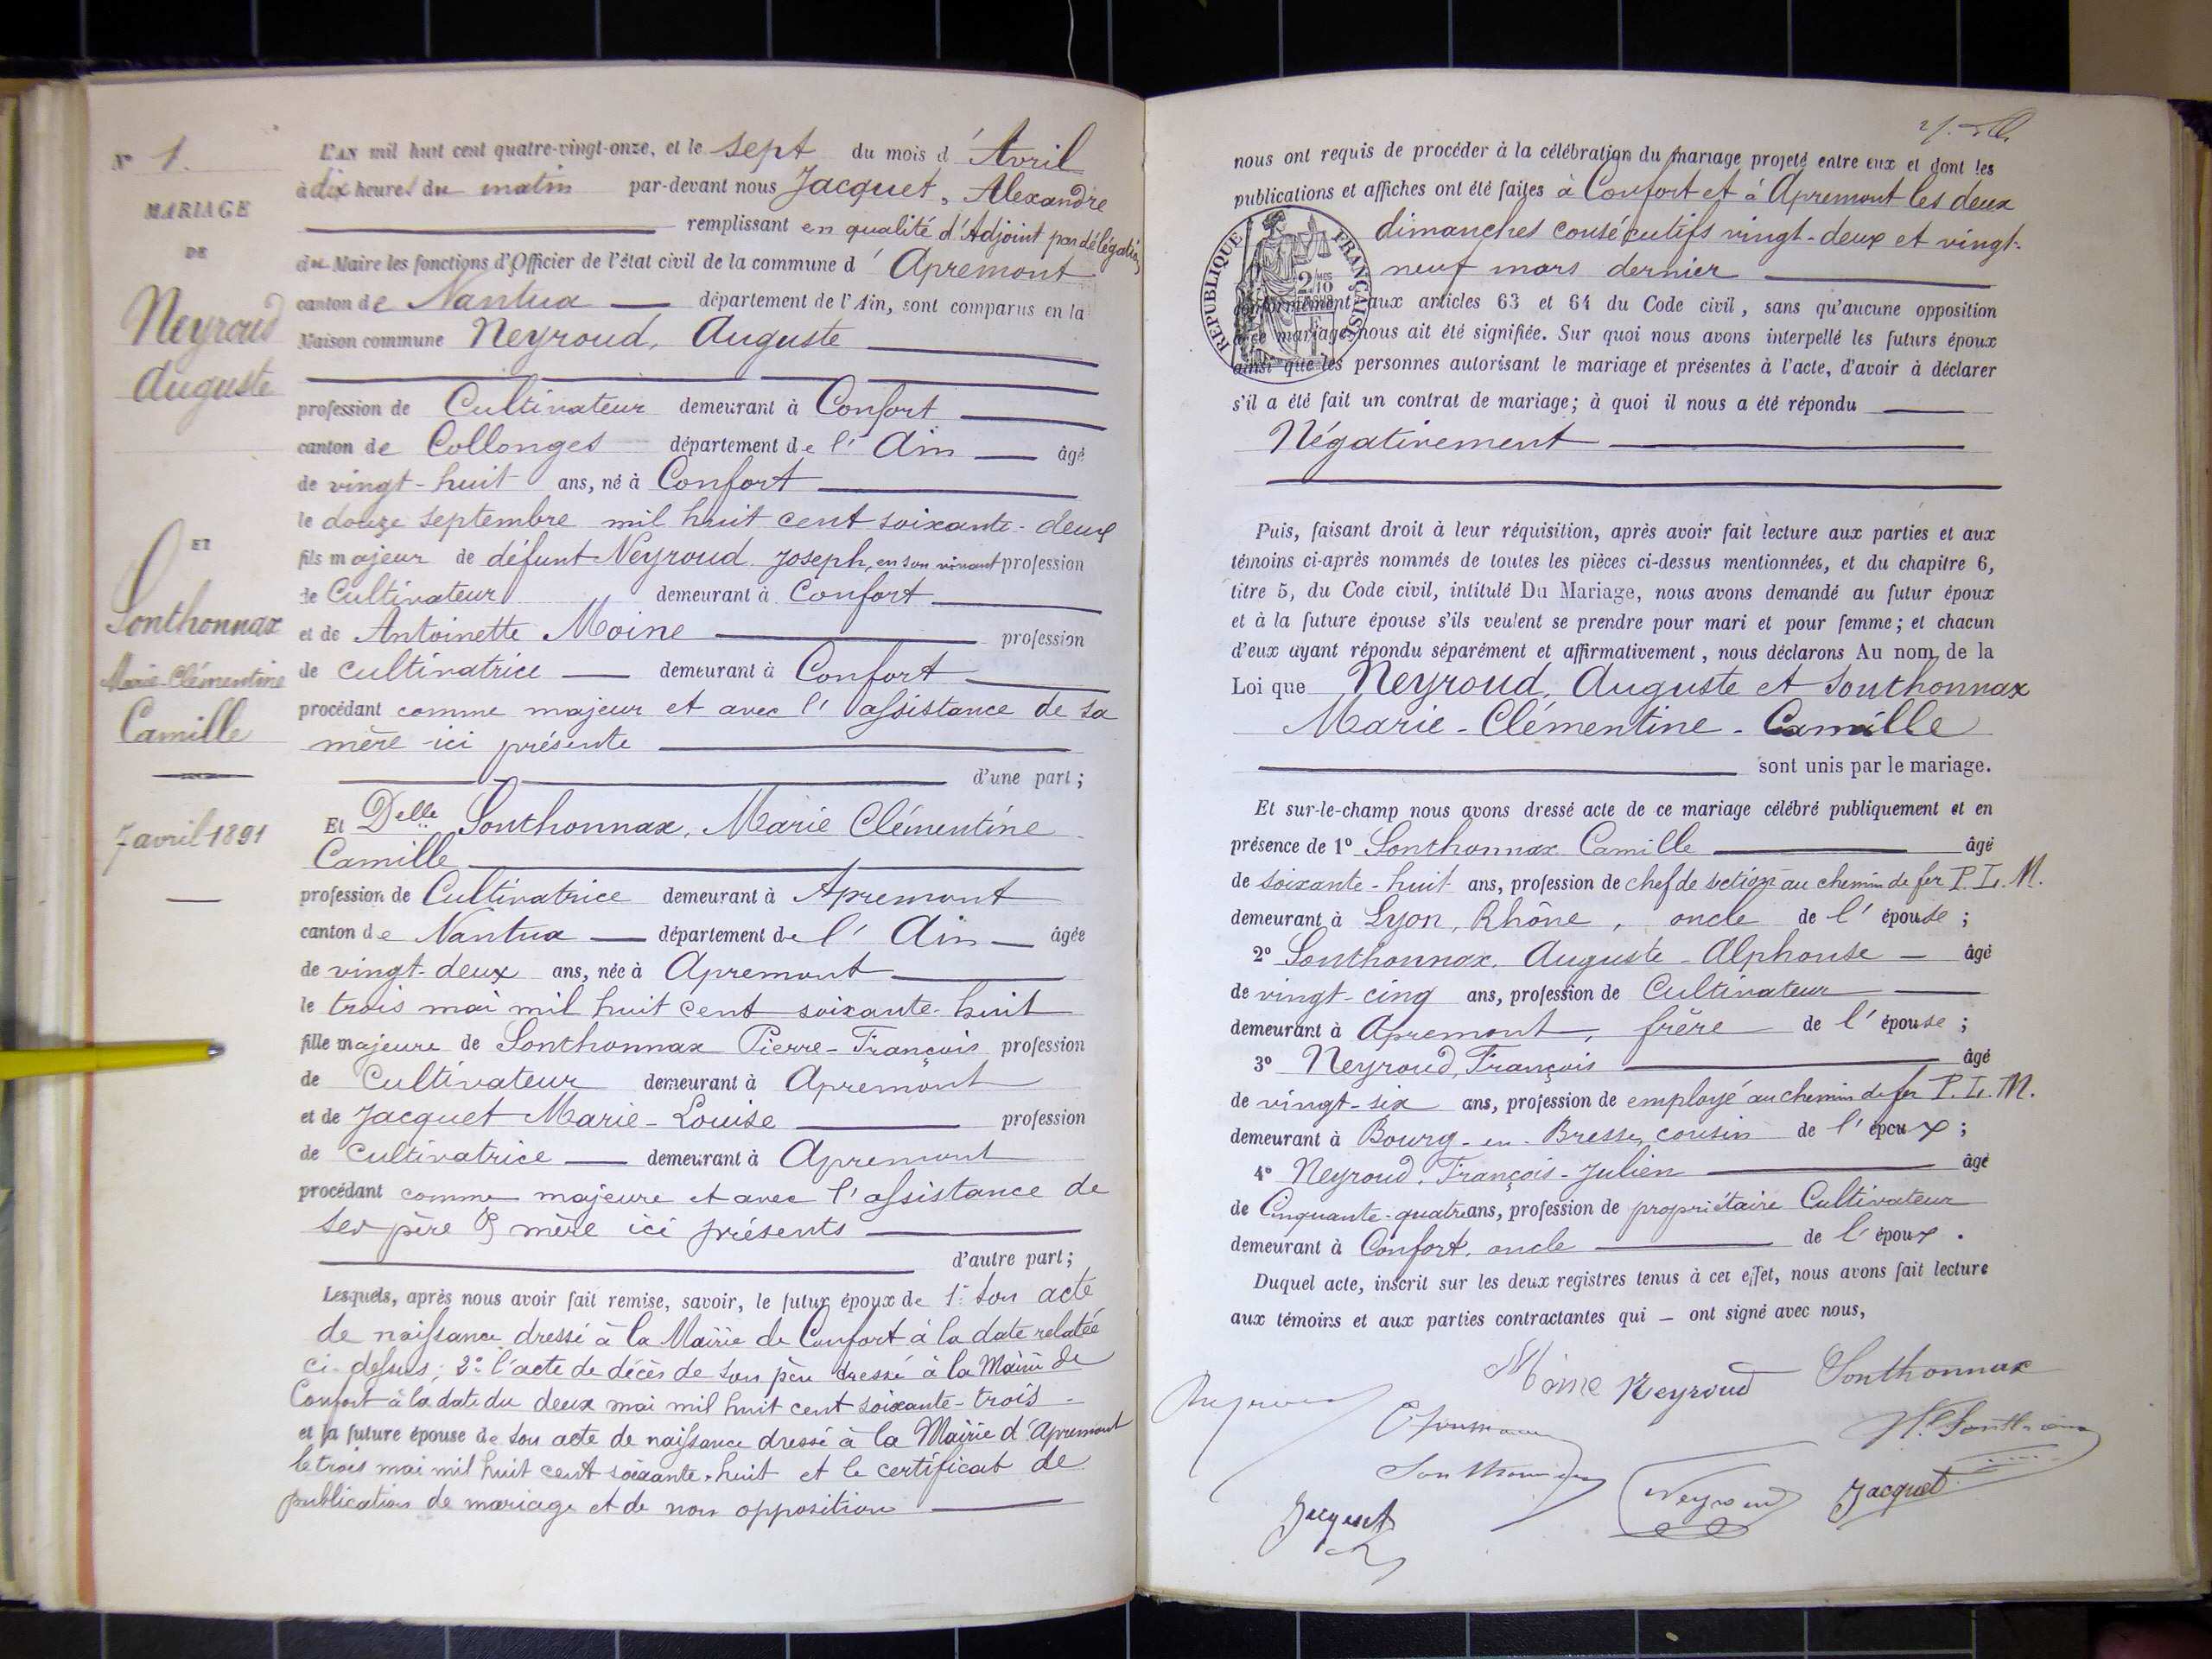 N° 1.
MARIAGE
DE
Neyroud
Auguste
ET
Sonthonnax
Marie-Clémentine
Camille
7 avril 1891
L'AN mil huit cent quatre-vingt-onze, et le sept du mois d'Avril
à dix heures du matin par-devant nous Jacquet, Alexandre
remplissant en qualité d'Adjoint par délégation
du Maire les fonctions d'Officier de l'état civil de la commune d'Apremont
canton de Nantua département de l'Ain, sont comparus en la
Maison commune Neyroud, Auguste
profession de Cultivateur demeurant à Confort
canton de Collonges département de l'Ain âgé
de vingt-huit ans, né à Confort
le douze septembre mil huit cent soixante-deux
fils majeur de défunt Neyroud Joseph, en son vivant profession
de Cultivateur demeurant à Confort
et de Antoinette Moine profession
de cultivatrice demeurant à Confort
procédant comme majeur et avec l'assistance de sa
mère ici présente
d'une part;
Et Delle Sonthonnax, Marie Clémentine
Camille
profession de Cultivatrice demeurant à Apremont
canton de Nantua département de l'Ain âgée
de vingt-deux ans, née à Apremont
le trois mai mil huit cent soixante-huit
fille majeure de Sonthonnax Pierre-François profession
de Cultivateur demeurant à Apremont
et de Jacquet Marie-Louise profession
de Cultivatrice demeurant à Apremont
procédant comme majeure et avec l'assistance de
ses père & mère ici présents
d'autre part;
Lesquels, après nous avoir fait remise, savoir, le futur époux de 1° son acte
de naissance dressé à la Mairie de Confort à la date relatée
ci-dessus; 2° l'acte de décès de son père dressé à la Mairie de
Confort à la date du deux mai mil huit cent soixante-trois
et la future épouse de son acte de naissance dressé à la Mairie d'Apremont
le trois mai mil huit cent soixante-huit et le certificat de
publication de mariage et de non opposition
nous ont requis de procéder à la célébration du mariage projeté entre eux et dont les
publications et affiches ont été faites à Confort et à Apremont les deux
dimanches consécutifs vingt-deux et vingt-
neuf mars dernier
RÉPUBLIQUE FRANÇAISE
conformément aux articles 63 et 64 du Code civil, sans qu'aucune opposition
à ce mariage nous ait été signifiée. Sur quoi nous avons interpellé les futurs époux
ainsi que les personnes autorisant le mariage et présentes à l'acte, d'avoir à déclarer
s'il a été fait un contrat de mariage; à quoi il nous a été répondu
Négativement
Puis, faisant droit à leur réquisition, après avoir fait lecture aux parties et aux
témoins ci-après nommés de toutes les pièces ci-dessus mentionnées, et du chapitre 6,
titre 5, du Code civil, intitulé Du Mariage, nous avons demandé au futur époux
et à la future épouse s'ils veulent se prendre pour mari et pour femme; et chacun
d'eux ayant répondu séparément et affirmativement, nous déclarons Au nom de la
Loi que Neyroud, Auguste et Sonthonnax
Marie-Clémentine-Camille
sont unis par le mariage.
Et sur-le-champ nous avons dressé acte de ce mariage célébré publiquement et en
présence de 1° Sonthonnax Camille âgé
de soixante-huit ans, profession de chef de section au chemin de fer P. L. M.
demeurant à Lyon, Rhône, oncle de l'épouse;
2° Sonthonnax, Auguste-Alphonse âgé
de vingt-cinq ans, profession de Cultivateur
demeurant à Apremont, frère de l'épouse;
3° Neyroud, François âgé
de vingt-six ans, profession de employé au chemin de fer P. L. M.
demeurant à Bourg-en-Bresse, cousin de l'époux;
4° Neyroud, François-Julien âgé
de Cinquante-quatre ans, profession de propriétaire Cultivateur
demeurant à Confort, oncle de l'époux.
Duquel acte, inscrit sur les deux registres tenus à cet effet, nous avons fait lecture
aux témoins et aux parties contractantes qui – ont signé avec nous,
Moine Neyroud Sonthonnax
Neyroud
Jacquet Jacquet